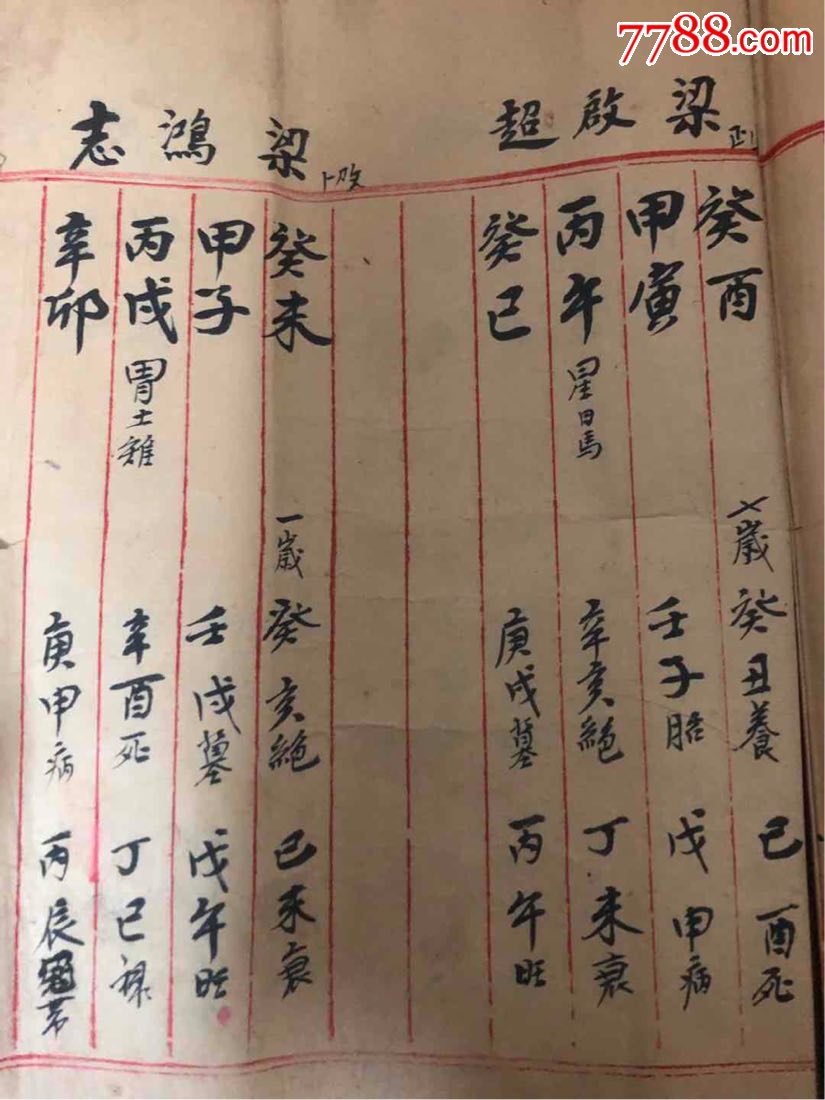 7788.com
梁啟超
癸酉 七歲 癸丑養 己酉死
甲寅 壬子胎 戊申病
丙午 星日馬 辛亥絕 丁未衰
癸巳 庚戌墓 丙午旺
梁鴻志
癸未 一歲 癸亥絕 己未衰
甲子 壬戌墓 戊午旺
丙戌 胃土雉 辛酉死 丁巳祿
辛卯 庚申病 丙辰冠帶